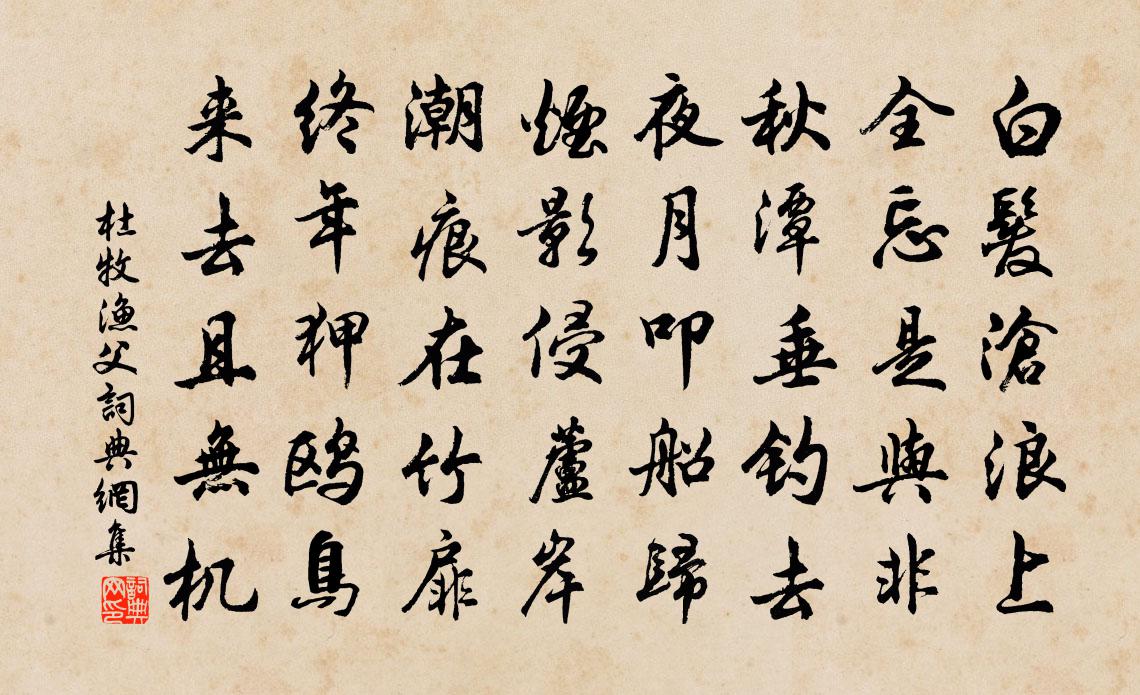 白髮滄浪上
全忘是與非
秋潭垂钓去
夜月叩船歸
煙影侵蘆岸
潮痕在竹扉
終年狎鸥鳥
来去且無机
杜牧漁父詞典網集
詞典網印